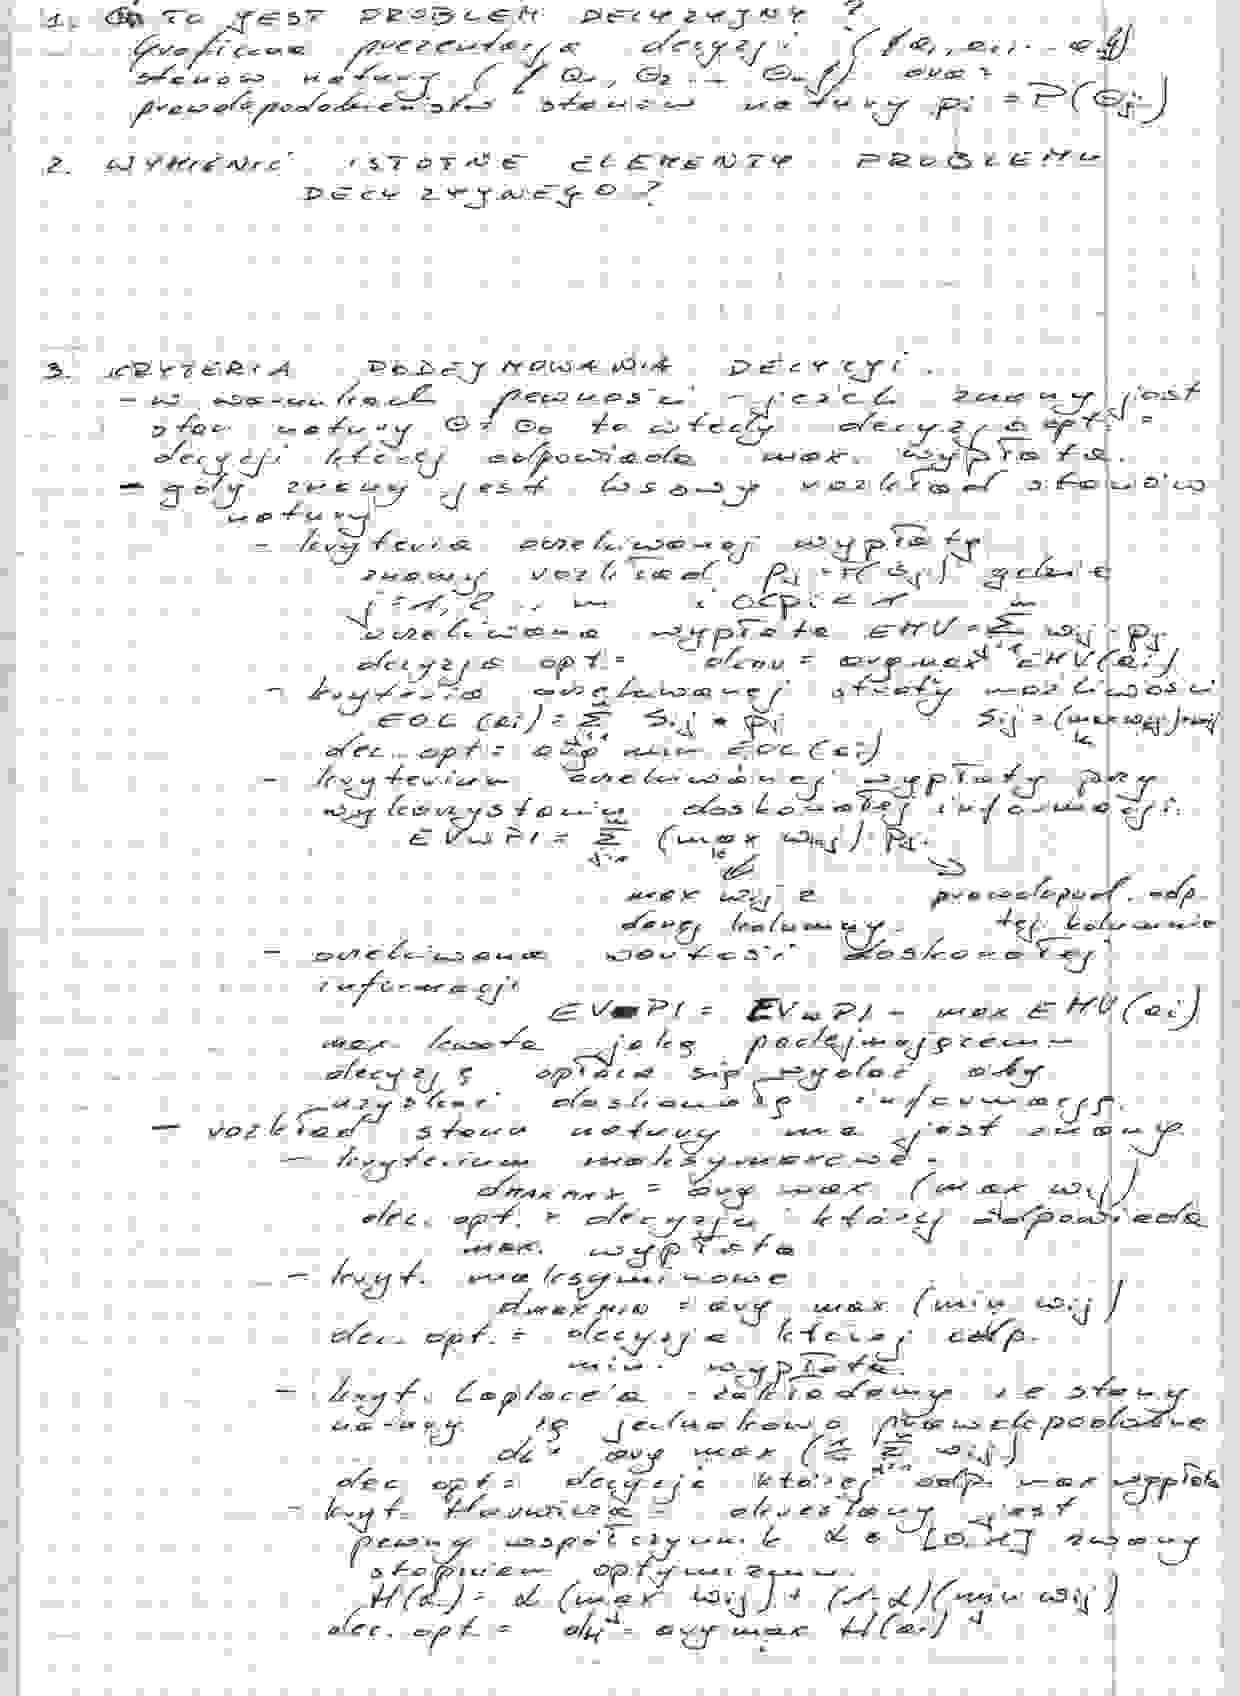 1. Co TO JEST PROBLEM DECYZYJNY ?
Graficzna prezentacja decyzji ({a1, a2, ... an})
stanów natury ({Θ1, Θ2 ... Θm}) oraz
prawdopodobieństw stanów natury pj = P(Θj)
2. WYMIENIĆ ISTOTNE ELEMENTY PROBLEMU
DECYZYJNEGO ?
3. KRYTERIA PODEJMOWANIA DECYZJI.
- w warunkach pewności - jeżeli znany jest
stan natury Θ = Θ0 to wtedy decyzja opt. =
decyzji której odpowiada max. wypłata.
- gdy znany jest losowy rozkład stanów
natury
- kryteria oczekiwanej wypłaty
znamy rozkład pj = P(Θj) gdzie
j = 1, 2 .., m i 0<pi<1
oczekiwana wypłata EMV = Σ wij · pj
decyzja opt. = demv = arg max EMV(ai)
- kryteria oczekiwanej straty możliwości
EOL (ai) = Σ Sij * pj Sij = (max wkj) - wij
k
dec. opt = arg min EOL(ai)
- kryterium oczekiwanej wypłaty przy
wykorzystaniu doskonałej informacji.
EVwPI = Σ (max wkj) · Pj.
max wij z prawdopod. odp.
danej kolumny. tej kolumnie
- oczekiwana wartość doskonałej
informacji
EVPI = EVwPI - max EMV(ai)
max. kwota jaką podejmującemu
decyzję opłaca się wydać aby
uzyskać doskonałą informację.
- rozkład stanu natury nie jest znany
- kryterium maksymaxowe -
dMAXMAX = arg max (max wij)
dec. opt. = decyzja której odpowiada
max. wypłata
- kryt. maksyminowe
dMAXMIN = arg max (min wij)
dec. opt. = decyzja której odp.
min. wypłata.
- kryt. Laplace'a - zakładamy że stany
natury są jednakowo prawdopodobne
dL = arg max (1/m Σ wij)
dec opt = decyzja której odp. max wypłata
- kryt. Hurwicza - określony jest
pewny współczynnik α ∈ [0,1] zwany
stopniem optymizmu.
H(ai) = α (max wij) + (1-α)(min wij)
dec. opt = dH = arg max H(ai)